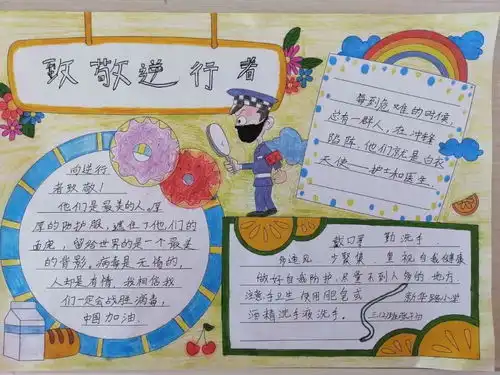 致敬逆行者
向逆行
者致敬！
他们是最美的人。厚
厚的防护服，遮住了他们的
面庞，留给世界的是一个最美
的背影。病毒是无情的，
人却是有情，我相信我
们一定会战胜病毒，
中国加油。
每到危难的时候，
总有一群人，在冲锋
陷阵。他们就是白衣
天使——护士和医生。
戴口罩 勤洗手
少聚集 重视自我健康
做好自我防护，尽量不到人多的地方
注意手卫生 使用肥皂或
酒精洗手液洗手。
小学